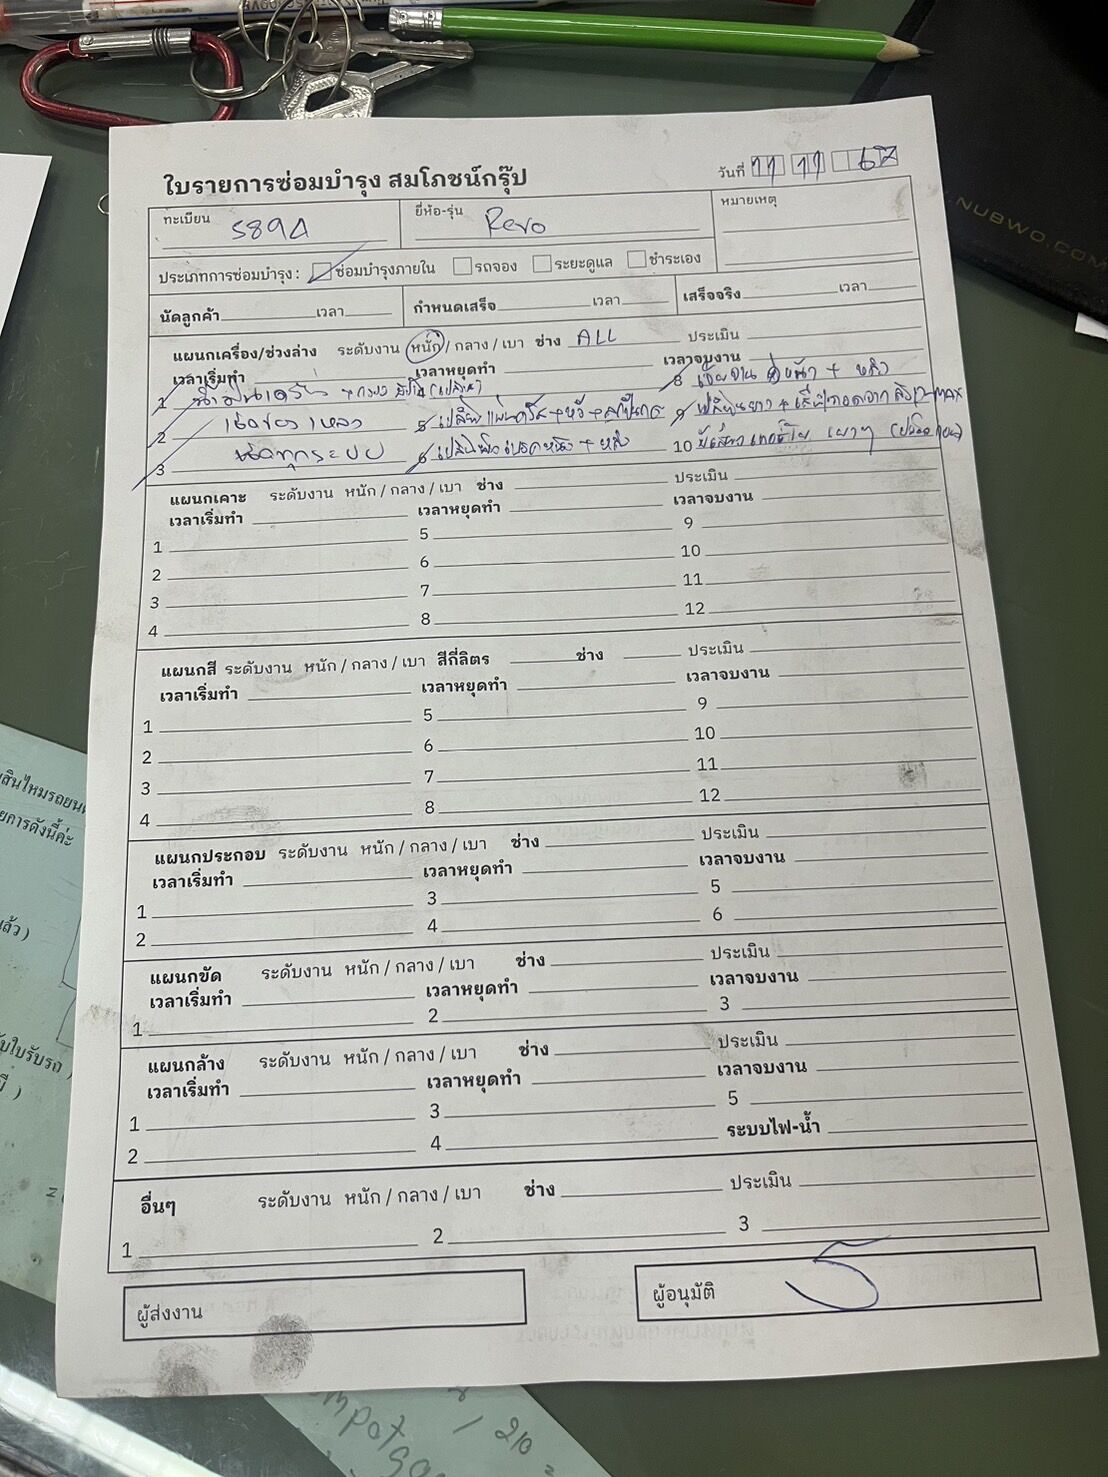 ใบรายการซ่อมบำรุง สมโภชน์กรุ๊ป
วันที่ 11 11 67
ทะเบียน 5894 ยี่ห้อ-รุ่น Revo หมายเหตุ
ประเภทการซ่อมบำรุง : ซ่อมบำรุงภายใน รถจอง ระยะดูแล ชำระเอง
นัดลูกค้า เวลา กำหนดเสร็จ เวลา เสร็จจริง เวลา
แผนกเครื่อง/ช่วงล่าง ระดับงาน หนัก / กลาง / เบา ช่าง ALL ประเมิน
เวลาเริ่มทำ เวลาหยุดทำ เวลาจบงาน
1 น้ำมันเครื่อง + กรอง 8 เจียจาน หน้า + หลัง
2 เช็คของเหลว 5 เปลี่ยน 9 เปลี่ยนยาง + MAX
3 เช็คทุกระบบ 6 + หลัง 10 มีเสียง เบาๆ
แผนกเคาะ ระดับงาน หนัก / กลาง / เบา ช่าง ประเมิน
เวลาเริ่มทำ เวลาหยุดทำ เวลาจบงาน
1 5 9
2 6 10
3 7 11
4 8 12
แผนกสี ระดับงาน หนัก / กลาง / เบา สีกี่ลิตร ช่าง ประเมิน
เวลาเริ่มทำ เวลาหยุดทำ เวลาจบงาน
1 5 9
2 6 10
3 7 11
4 8 12
แผนกประกอบ ระดับงาน หนัก / กลาง / เบา ช่าง ประเมิน
เวลาเริ่มทำ เวลาหยุดทำ เวลาจบงาน
1 3 5
2 4 6
แผนกขัด ระดับงาน หนัก / กลาง / เบา ช่าง ประเมิน
เวลาเริ่มทำ เวลาหยุดทำ เวลาจบงาน
1 2 3
แผนกล้าง ระดับงาน หนัก / กลาง / เบา ช่าง ประเมิน
เวลาเริ่มทำ เวลาหยุดทำ เวลาจบงาน
1 3 5
2 4 ระบบไฟ-น้ำ
อื่นๆ ระดับงาน หนัก / กลาง / เบา ช่าง ประเมิน
1 2 3
ผู้ส่งงาน ผู้อนุมัติ
NUBWO.COM
สินไหมรถยนต์
ยการดังนี้ค่ะ
ล้ว )
บใบรับรถ
210